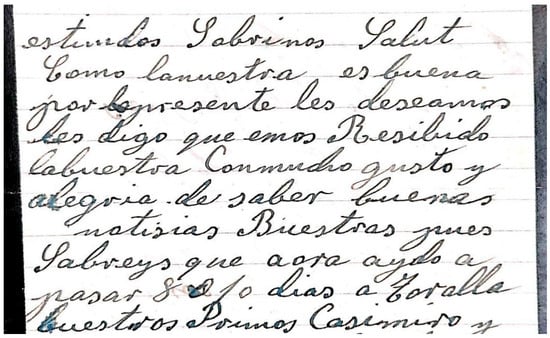 estimdos Sabrinos Salut
Como lanuestra es buena
por lo presente les deseamos
les digo que emos Resibido
labuestra Conmucho gusto y
alegria de saber buenas
notisias Buestras pues
Sabreys que aora aydo a
pasar 8 o 10 dias a Toralla
buestros Primos Casimiro y